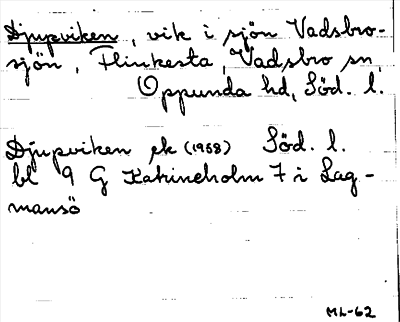 Djupviken, vik i sjön Vadsbro-
sjön, Flinkesta, Vadsbro sn,
Oppunda hd, Söd. l.
Djupviken ek (1958) Söd. l.
bl 9 G Katrineholm 7 i Lag-
mansö
ML-62